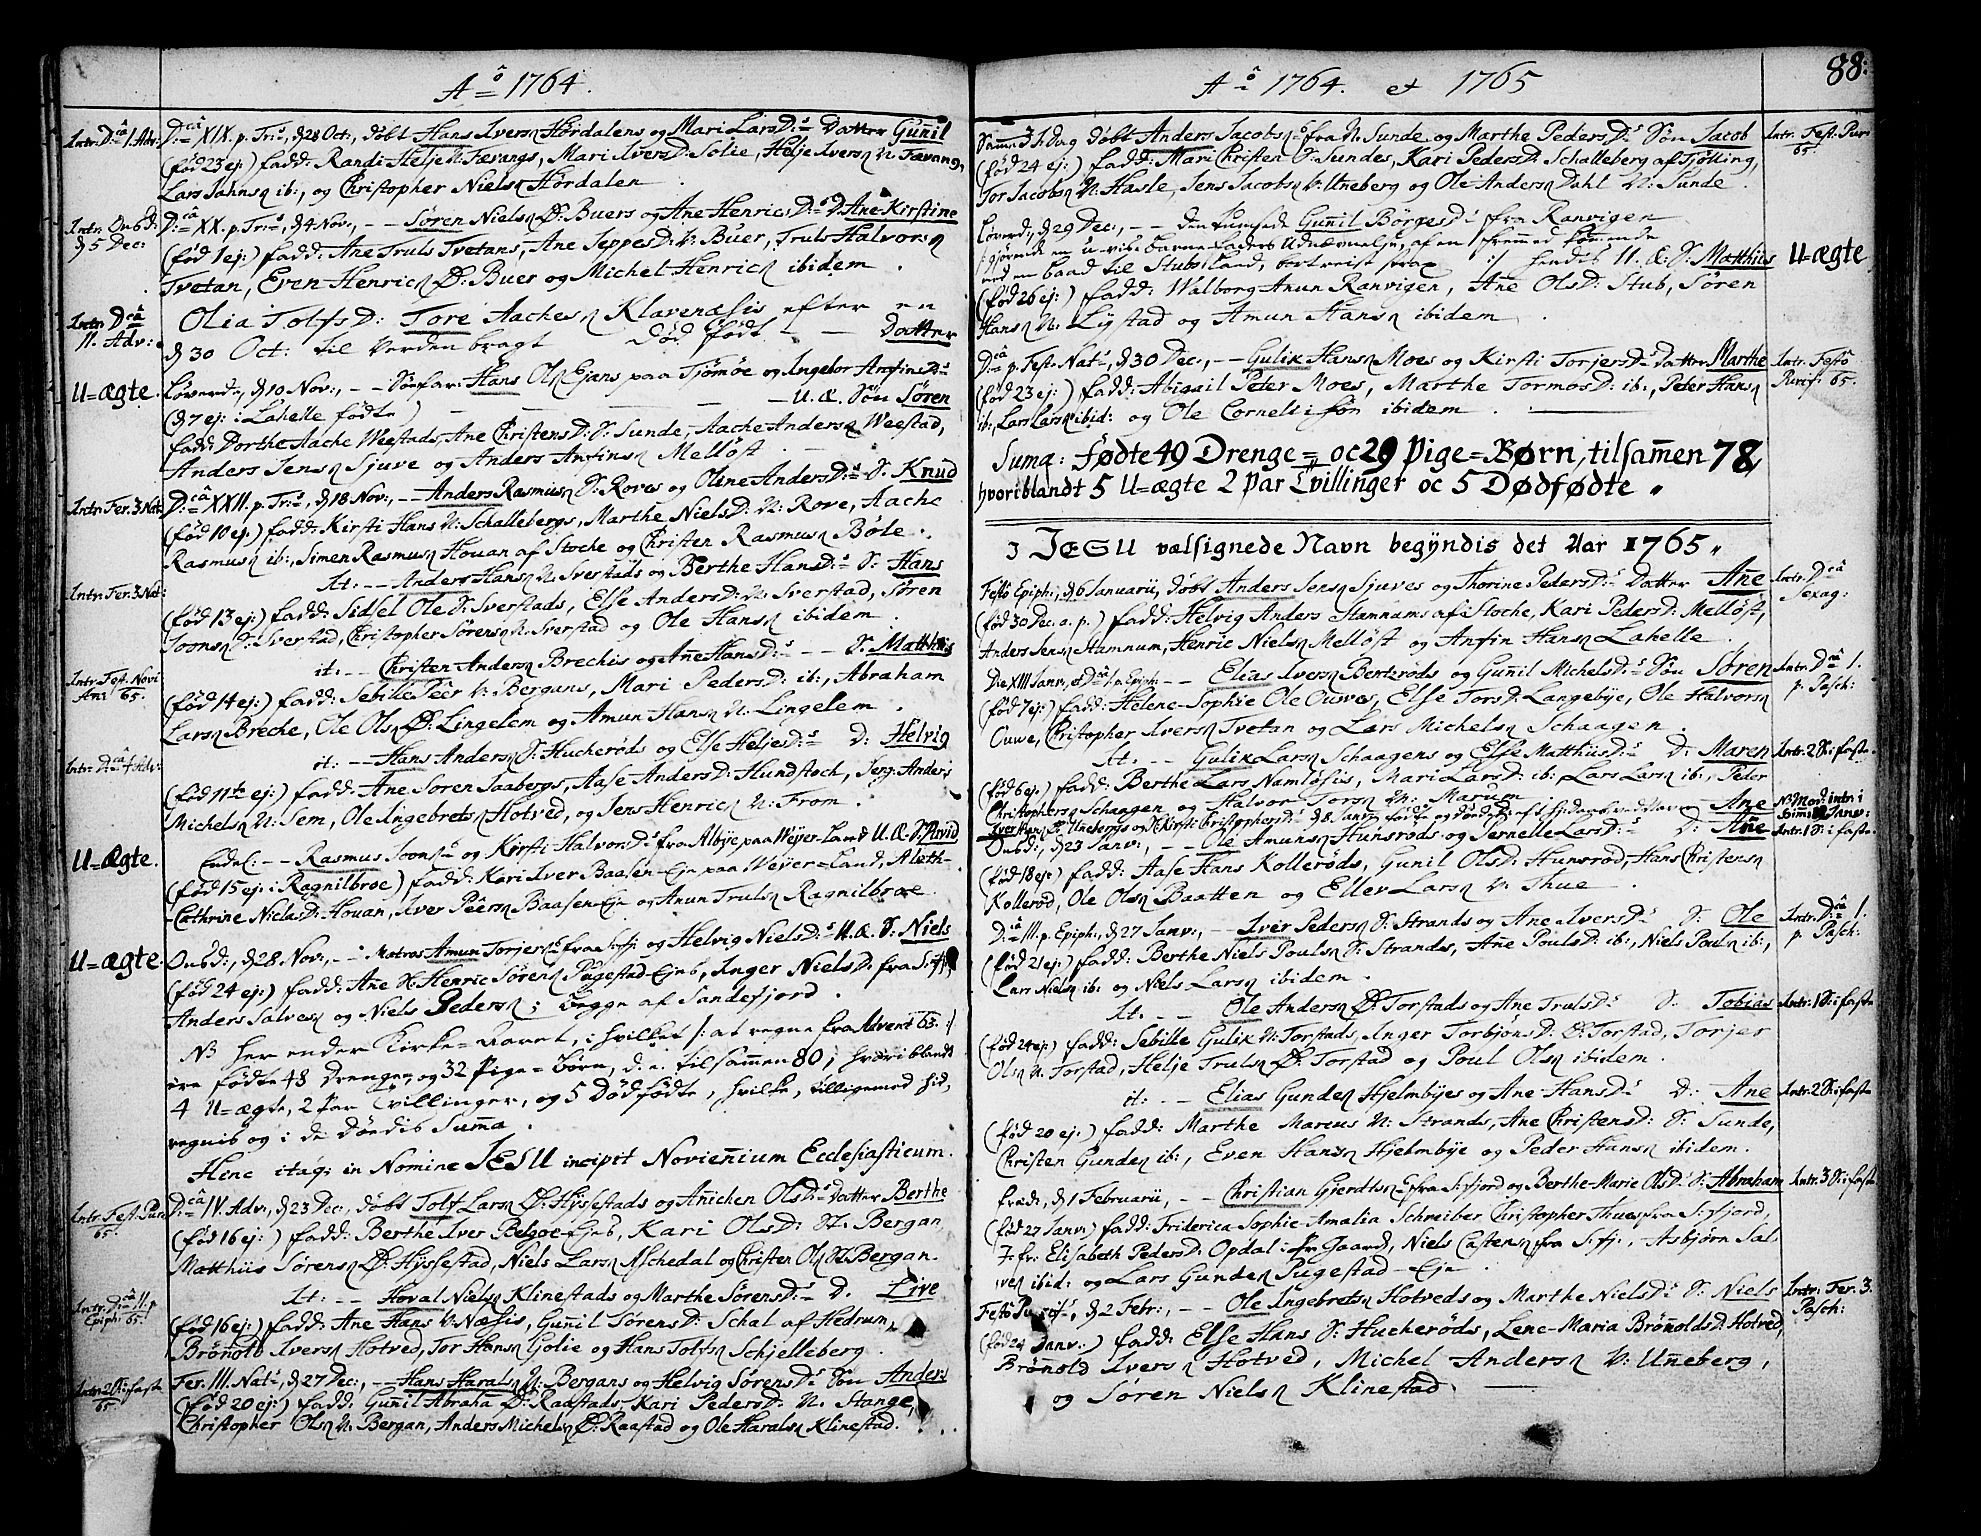 Aō 1764.
Intr: D:câ 1. Adv:
D:câ XIX. p. Tr:s, d 28 Oct., døbt Hans Ivers Hørdalens og Mari Lars D:s Datter Gunil
(fød 23 ej:) fadd: Randi Helje N. Færangs, Mari Ivers D: Solie, Helje Ivers N. Færang,
Lars Jahns ib:, og Christopher Niels Hørdalen.
Intr: Onsd:
d 5 Dec:
D:câ XX. p. Tr:s, d 4 Nov:, -- Søren Niels Ø: Buers og Ane Henrics D:s D. Ane-Kirstine
(fød 1 ej:) fadd: Ane Truls Tvetans, Ane Jeppes D: V: Buer, Truls Halvors
Tvetan, Even Henric Ø: Buer og Michel Henric ibidem.
Intr: D:câ
11. Adv:
Olia Tolfs D: Tore Aaches Klavenæsis efter en
d 30 Oct: til Verden bragt død født - Datter
U=ægte.
Løverd:, d 10 Nov:, -- Hans Ols Ejans paa Tjømøe og Ingebor Anfins D:s
(d 7 ej: i Lahelle fødte) - - U. æ. Søn Søren
fadd: Dorthe Aache Weestads, Ane Christens D: S: Sunde, Aache Anders Weestad,
Anders Jens Sjuve og Anders Anfins Melløst.
Intr: Fer. 3 Nat:
D:câ XXII. p. Tr:s, d 18 Nov:, -- Anders Rasmus S: Roves og Oline Anders D:s S: Knud
(fød 10 ej:) fadd: Kirsti Hans N: Schallebergs, Marthe Niels D: N: Rove, Aache
Rasmus ib:, Simen Rasmus Houan af Stoche og Christen Rasmus Bøle.
Intr: Fer. 3 Nat:
It: -- Anders Hans N: Sverstads og Berthe Hans D:s S: Hans
(fød 13 ej:) fadd: Sidsel Ole S: Sverstads, Else Anders D: N: Sverstad, Søren
Joons S: Sverstad, Christopher Sørens N: Sverstad og Ole Hans ibidem.
Intr: Fest: Novi
Ani 65.
it: -- Christen Anders Brechis og Ane Hans D:s -- S: Matthis
(fød 14 ej:) fadd: Sebille Peer V: Bergans, Mari Peders D: ib:, Abraham
Lars Breche, Ole Ols Ø: Lingelem og Amun Hans N: Lingelem.
Intr: D:câ 4 Adv:
it: -- Hans Anders S: Hucherøds og Else Heljes D:s D: Helvig
(fød 11te ej:) fadd: Ane Søren Saabergs, Aase Anders D: Hundstoch, Jerg: Anders
Michels N: Sem, Ole Ingebrets Hotved, og Jens Henric N: From.
U=ægte.
Eadel: -- Rasmus Joons og Kirsti Halvor D:s fra Albye paa Wejer-Land U. Æ. S: David
(fød 15 ej: i Ragnilbroe) fadd: Kari Iver Baasen-Eje paa Wejer=Land, Aleth-
Cathrine Niels D: Houan, Iver Peers Baasen-Eje og Anun Truls Ragnilbroe.
U=ægte
Onsd:, d 28 Nov:, -- Matros Amun Torjes fra S:fj: og Helvig Niels D:s U. æ. S: Niels
(fød 24 ej:) fadd: Ane Sl: Henric Søren Pugestad-Ejes, Inger Niels D: fra S:fj:
Anders Salves og Niels Peders; begge af Sandefjord.
NB her ender Kirke-Aaret, i hvilket /: at regne fra Advent 63:/
ere fødte 48 Drenge, og 32 Pige=Børn, d. e. tilsammen 80, hvoriblandt
4 U=ægte, 2 Par Tvillinger, og 5 Dødfødte, hvilke, tilligemed hid,
regnis og i de Dødis Summa.
Hinc itaq: in Nomine JESU incipit Noviennium Ecclesiasticum.
Intr: Fest: Puri
65.
D:câ IV. Adv:, d 23 Dec:, døbt Tolf Lars Ø: Hyssestads og Anichen Ols D:s Datter Berthe
(fød 16 ej:) fadd: Berthe Iver Belgoe-Ejes, Kari Ols D: St. Bergan
Matthiis Sørens Ø: Hyssestad, Niels Lars Aschedal og Christen Ols St. Bergan.
Intr: D:câ 11. p.
Epiph: 65.
It: -- Hoval Niels Klinestads og Marthe Sørens D:s D. Live
(fød 16 ej:) fadd: Ane Hans V: Næsis, Gunil Sørens D: Schal af Hedrum,
Brønold Ivers Hotved, Tor Hans Gjolie og Hans Tolfs Schjelleberg.
Intr: 2 S: i faste
65.
Fer. III. Nat:s, d 27 Dec:, -- Hans Harals N: Bergans og Helvig Sørens D:s Søn Anders
(fød 20 ej:) fadd: Gunil Abraha Ø: Raastads, Kari Peders D: N. Stange,
Christopher Ols N: Bergan, Anders Michels Ø: Raastad og Ole Harals Klinestad.
Aō 1764. et 1765
88:
Samme 3. Dag døbt Anders Jacobs fra N. Sunde og Marthe Peders D:s Søn Jacob
Intr: Fest: Puri
65.
(fød 24 ej:) fadd: Mari Christen S: Sundes, Kari Peders D: Schalleberg af Tjølling,
Tor Jacobs N: Hasle, Jens Jacobs V: Uneberg og Ole Anders Dahl N: Sunde.
Løverd:, d 29 Dec:, -- den Gunil Børges D:s fra Ranvigen
U=ægte
med en baad til Stubsland, bortreist hendes 11. Æ: S: Matthias
(fød 26 ej:) fadd: Walborg Anun Ranvigen, Ane Ols D: Stub, Søren
Hans N: Lystad og Amun Hans ibidem.
D:câ p. Fest: Nat:s, d 30 Dec:, -- Gulik Hans Moes og Kirsti Torjers D:s Datter Marthe
Intr: Festo
Purif: 65.
(fød 23 ej:) fadd: Abigail Peter Moes, Marthe Tormos D: ib:, Peter Hans
ib:, Lars Lars ibid: og Ole Cornelisøn ibidem.
Suma: Fødte 49 Drenge= oc 29 Pige=Børn, tilsamen 78,
hvoriblandt 5 U=ægte 2 Par Tvillinger oc 5 Dødfødte.
I JESU vælsignede Navn begyndis det Aar 1765.
Festo Epiph:, d 6 Januarii, døbt Anders Jens Sjuves og Thorine Peders D:s Datter Ane
Intr: D:câ
Sexag:
(fød 30 Dec. a. p.) fadd: Helvig Anders Stamnums af Stoche, Kari Peders D: Melløst,
Anders Jens Stamnum, Henric Niels Melløst og Anfin Hans Lahelle.
Die XIII Janv:, et D:câ 1. p. Epiph: -- Elias Ivers Bertzrøds og Gunil Michels D:s Søn Søren
Intr: D:câ 1.
p. Pasch:
(fød 7 ej:) fadd: Helene-Sophie Ole Ouwes, Else Tors D: Langebye, Ole Halvors
Ouwe, Christopher Ivers Tvetan og Lars Michels Schaagen.
It. -- Gulik Lars Schaagens og Else Matthiis D:s D: Maren
Intr: 2 S: i faste.
(fød 6 ej:) fadd: Berthe Lars Namløsis, Mari Lars D: ib: Lars Lars ib:, Peder
Christophers Schaagen, og Halvor Tors N: Marum
Iver Hans V: Unebergs og Sl: Kirsti Christophers D:s d 8 Janv: fødte og Ane
Onsd:, d 23 Janv:, -- Ole Amuns Hunsrøds og Pernelle Lars D:s D: Ane
Intr: 1 S: i faste
(fød 18 ej:) fadd: Aase Hans Kollerøds, Gunil Ols D: Hunsrød, Hans Christens
Kollerød, Ole Ols Baatten og Eller Lars V: Thue.
D:câ III. p. Epiph:, d 27 Janv:, -- Iver Peders S: Strands og Ane Ivers D:s S: Ole
Intr: D:câ 1.
p. Pasch:
(fød 21 ej:) fadd: Berthe Niels Pouls S: Strands, Ane Pouls D: ib:, Niels Pouls ib:,
Lars Niels ib: og Niels Lars ibidem.
It. -- Ole Anders Ø: Torstads og Ane Truls D:s S: Tobias
Intr: 1 S: i faste
(fød 24 ej:) fadd: Sebille Gulik N: Torstads, Inger Torbjøns D: Ø: Torstad, Torjer
Ols N: Torstad, Helje Truls Ø: Torstad og Poul Ols ibidem.
it: -- Elias Gunders Hjelmbyes og Ane Hans D:s D: Ane
Intr: 2 S: i faste
(fød 20 ej:) fadd: Marthe Marcus N: Strands, Ane Christens D: S: Sunde,
Christen Gunders ib:, Even Hans Hjelmbye og Peder Hans ibidem.
Fred:, d 1 Februarii, -- Christian Gierdts fra S:fjord og Berthe-Marie Ols D:s S: Abraham
Intr: 3 S: i faste
(fød 27 Janv:) fadd: Friderica Sophie Amalia Schreiber, Christopher Thues fra S:fjord,
J:fr: Elisabeth Peders D: Opdal i Gaard, Niels Castens fra S:fj:, Asbjørn Sal
ves ibid: og Lars Gunders Pugestad-Eje.
Festo Purif:, d 2 Febr:, -- Ole Ingebrets Hotveds og Marthe Niels D:s S: Niels
Intr: Fer. 3.
Pasch:
(fød 24 Janv:) fadd: Else Hans S: Hucherøds, Lene-Maria Brønolds D: Hotved,
Brønnold Ivers Hotved, Michel Anders V: Unneberg,
og Søren Niels Klinestad